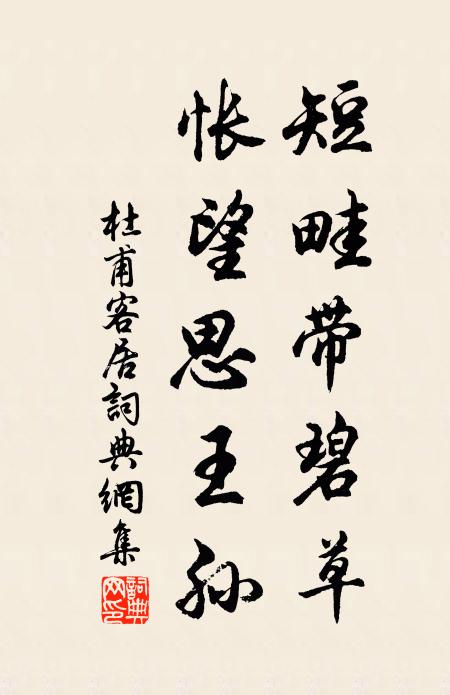 短畦带碧草
怅望思王孙
杜甫客居詞典網集
詞典网印